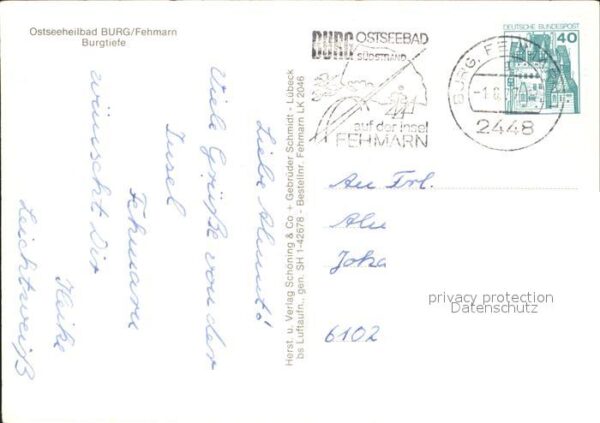 Ostseeheilbad BURG/Fehmarn
Burgtiefe
Liebe Almut!
Viele Grüße von der
Insel
Fehmarn
wünscht Dir
Heike
Leichtweiß
Herst. u. Verlag Schöning & Co + Gebrüder Schmidt - Lübeck
bs Luftaufn., gen. SH 1-42678 - Bestellnr. Fehmarn LK 2046
BURG OSTSEEBAD
SÜDSTRAND
auf der Insel
FEHMARN
BURG, FEHMARN
2448
DEUTSCHE BUNDESPOST
40
An Frl.
Alu
Joka
6102
privacy protection
Datenschutz